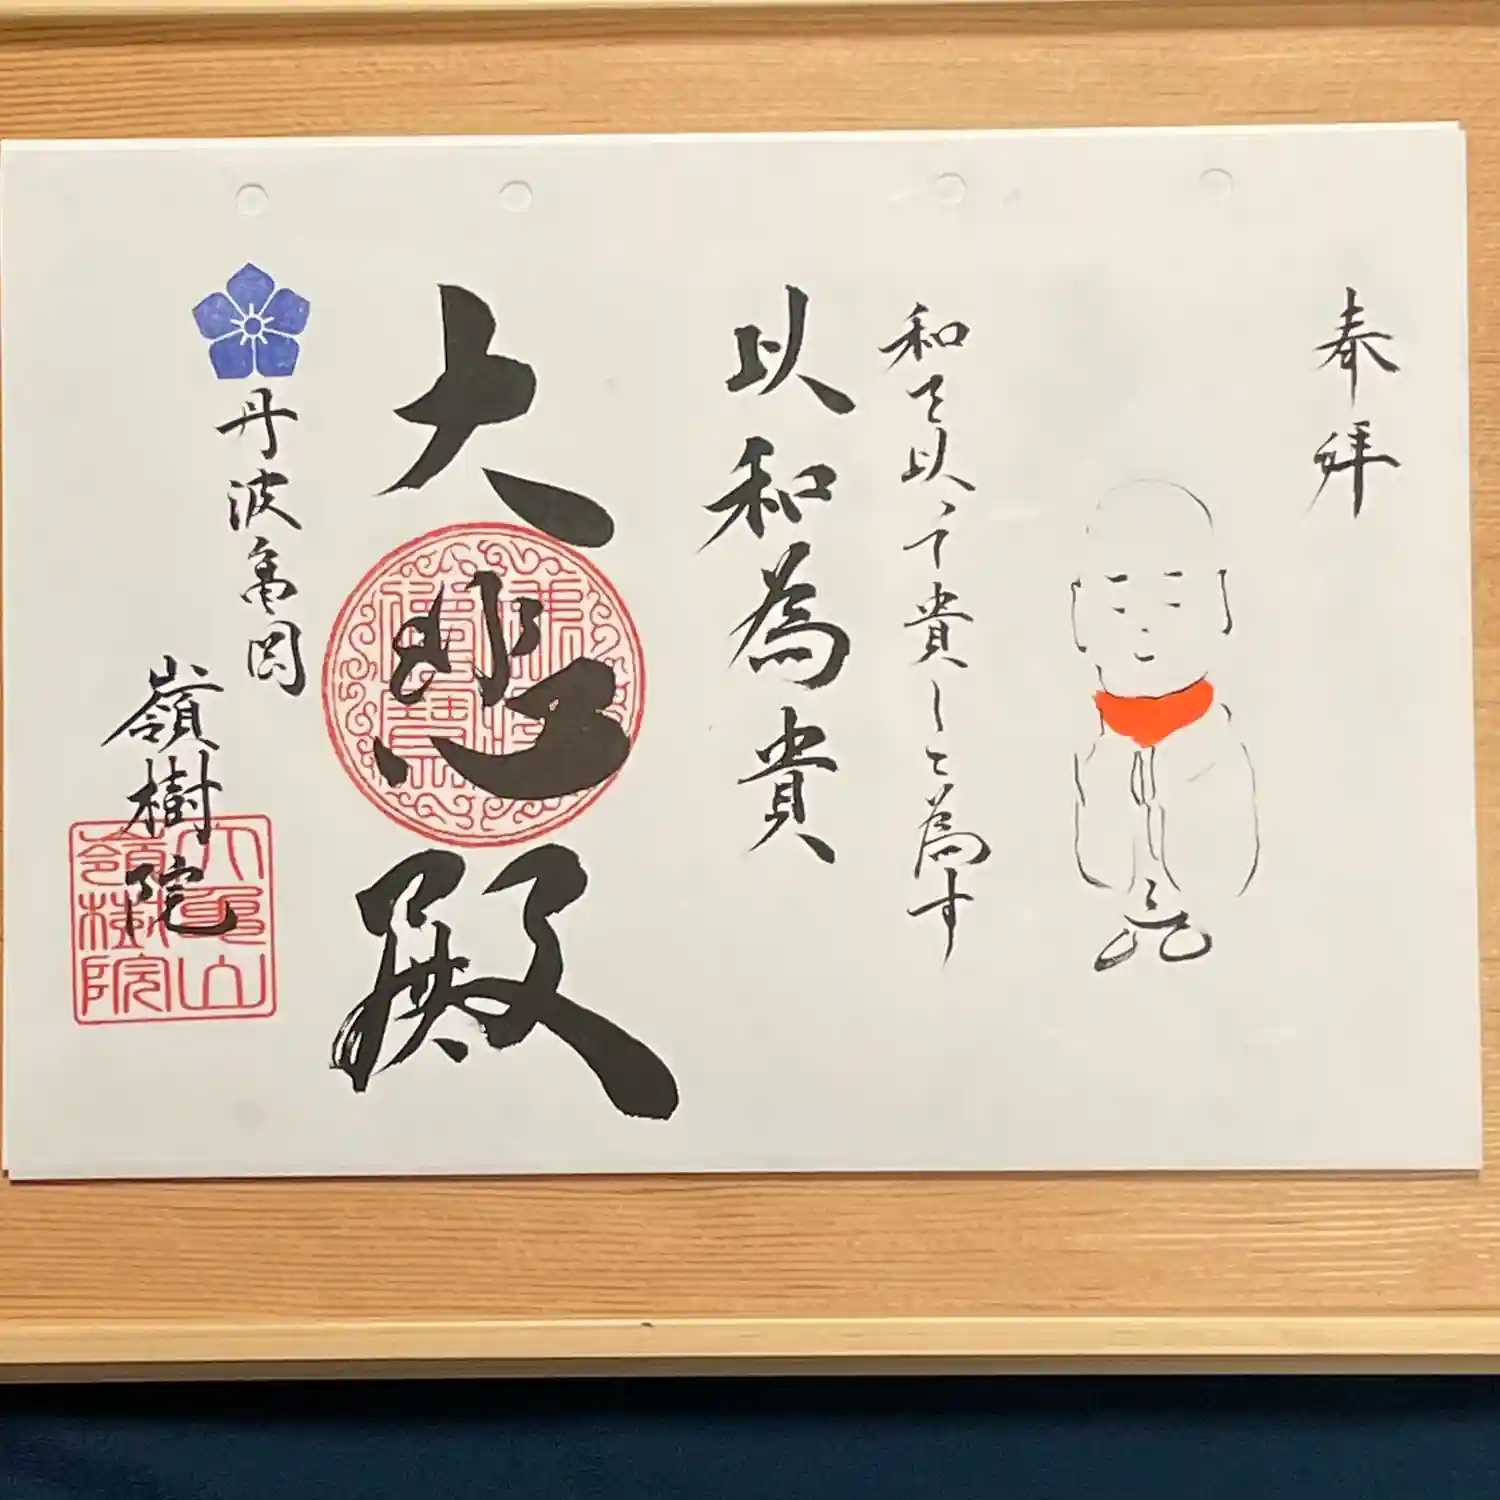 奉拝
和を以って貴しと為す
以和為貴
大悲殿
丹波亀岡
嶺樹院
大亀山
嶺樹院